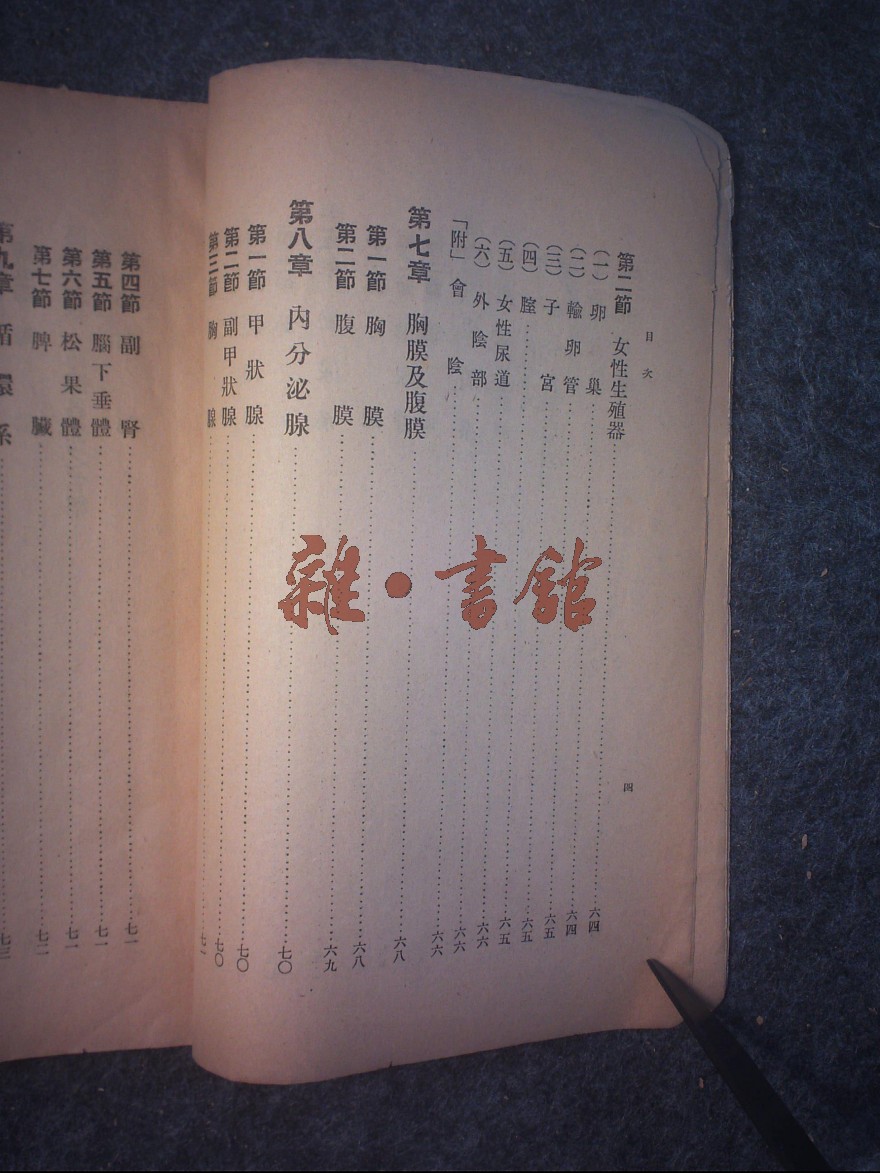 目次
四
第二節 女性生殖器……六四
(一) 卵巢……六四
(二) 輸卵管……六五
(三) 子宮……六五
(四) 膣……六五
(五) 女性尿道……六六
(六) 外陰部……六六
「附」會陰……六六
第七章 胸膜及腹膜……六八
第一節 胸膜……六八
第二節 腹膜……六九
第八章 內分泌腺……七〇
第一節 甲狀腺……七〇
第二節 副甲狀腺……七〇
第三節 胸腺……七一
第四節 副腎……七一
第五節 腦下垂體……七一
第六節 松果體……七一
第七節 脾臟……七二
第九章 循環系……七三
雜·書館